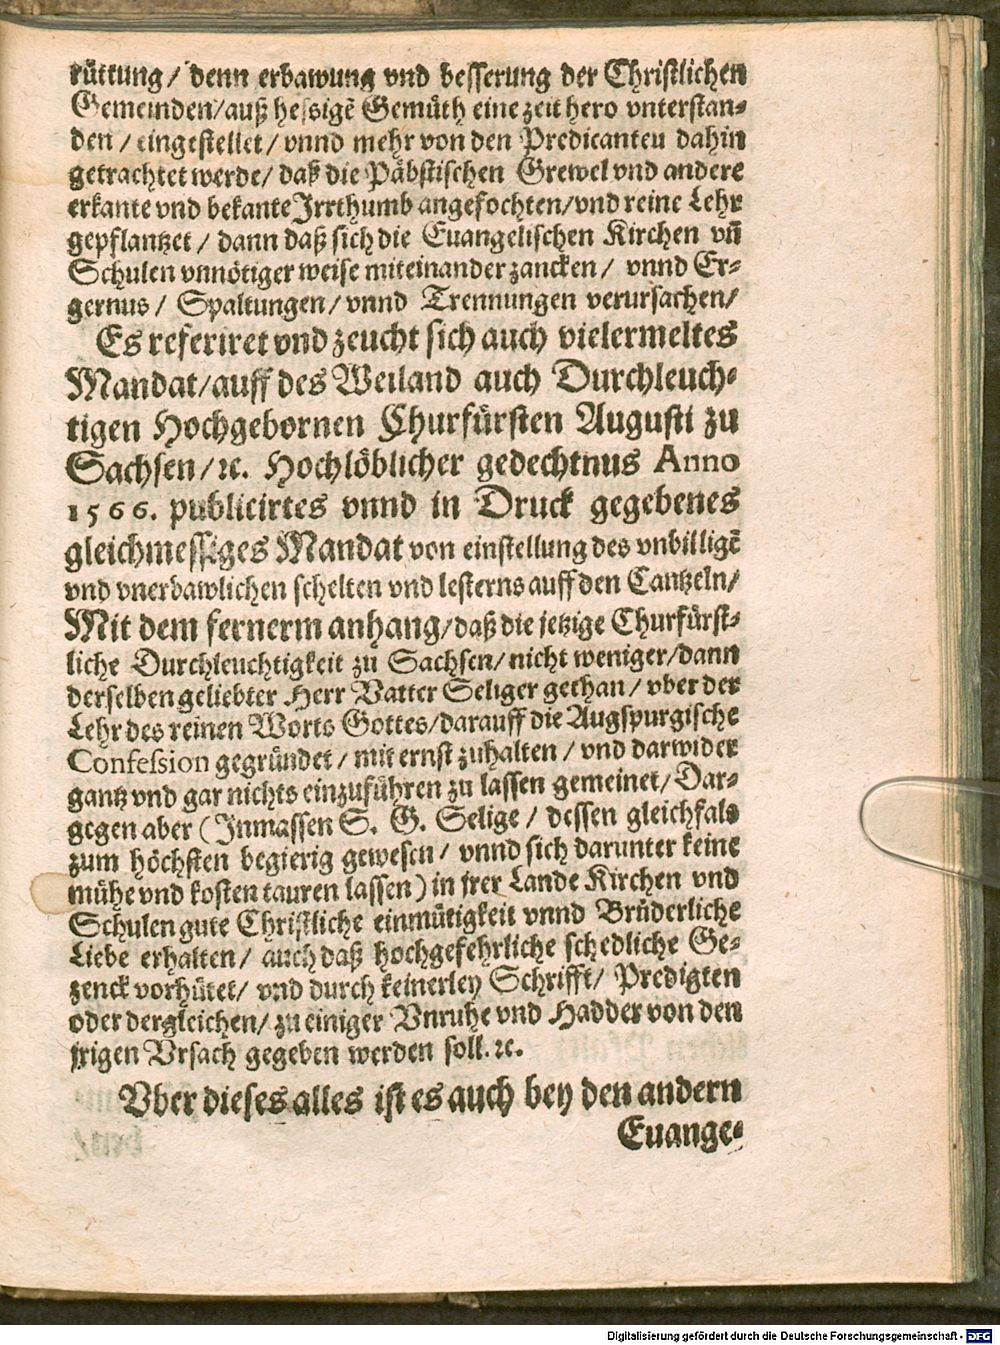 rüttung/ denn erbawung vnd besserung der Christlichen
Gemeinden/auß hessigẽ Gemüth eine zeit hero vnterstan-
den/ eingestellet/ vnnd mehr von den Predicanten dahin
getrachtet werde/ daß die Päbstischen Grewel vnd andere
erkante vnd bekante Irrthumb angefochten/vnd reine Lehr
gepflantzet/ dann daß sich die Euangelischen Kirchen vñ
Schulen vnnötiger weise miteinander zancken/ vnnd Er-
gernus/ Spaltungen/ vnnd Trennungen verursachen/
Es referiret vnd zeucht sich auch vielermeltes
Mandat/auff des Weiland auch Durchleuch-
tigen Hochgebornen Churfürsten Augusti zu
Sachsen/ ꝛc. Hochlöblicher gedechtnus Anno
1566. publicirtes vnnd in Druck gegebenes
gleichmessiges Mandat von einstellung des vnbilligẽ
vnd vnerbawlichen schelten vnd lesterns auff den Cantzeln/
Mit dem fernerm anhang/daß die jetzige Churfürst-
liche Durchleuchtigkeit zu Sachsen/nicht weniger/dann
derselben geliebter Herr Vatter Seliger gethan/ vber der
Lehr des reinen Worts Gottes/darauff die Augspurgische
Confession gegründet/ mit ernst zuhalten/ vnd darwider
gantz vnd gar nichts einzuführen zu lassen gemeinet/ Dar-
gegen aber (Inmassen S. G. Selige/ dessen gleichfals
zum höchsten begierig gewesen/ vnnd sich darunter keine
mühe vnd kosten tauren lassen) in jrer Lande Kirchen vnd
Schulen gute Christliche einmütigkeit vnnd Brüderliche
Liebe erhalten/ auch daß hochgefehrliche schedliche Ge-
zenck vorhütet/ vnd durch keinerley Schrifft/ Predigten
oder dergleichen/ zu einiger Vnruhe vnd Hadder von den
jrigen Vrsach gegeben werden soll. ꝛc.
Vber dieses alles ist es auch bey den andern
Euange-
Digitalisierung gefördert durch die Deutsche Forschungsgemeinschaft - DFG